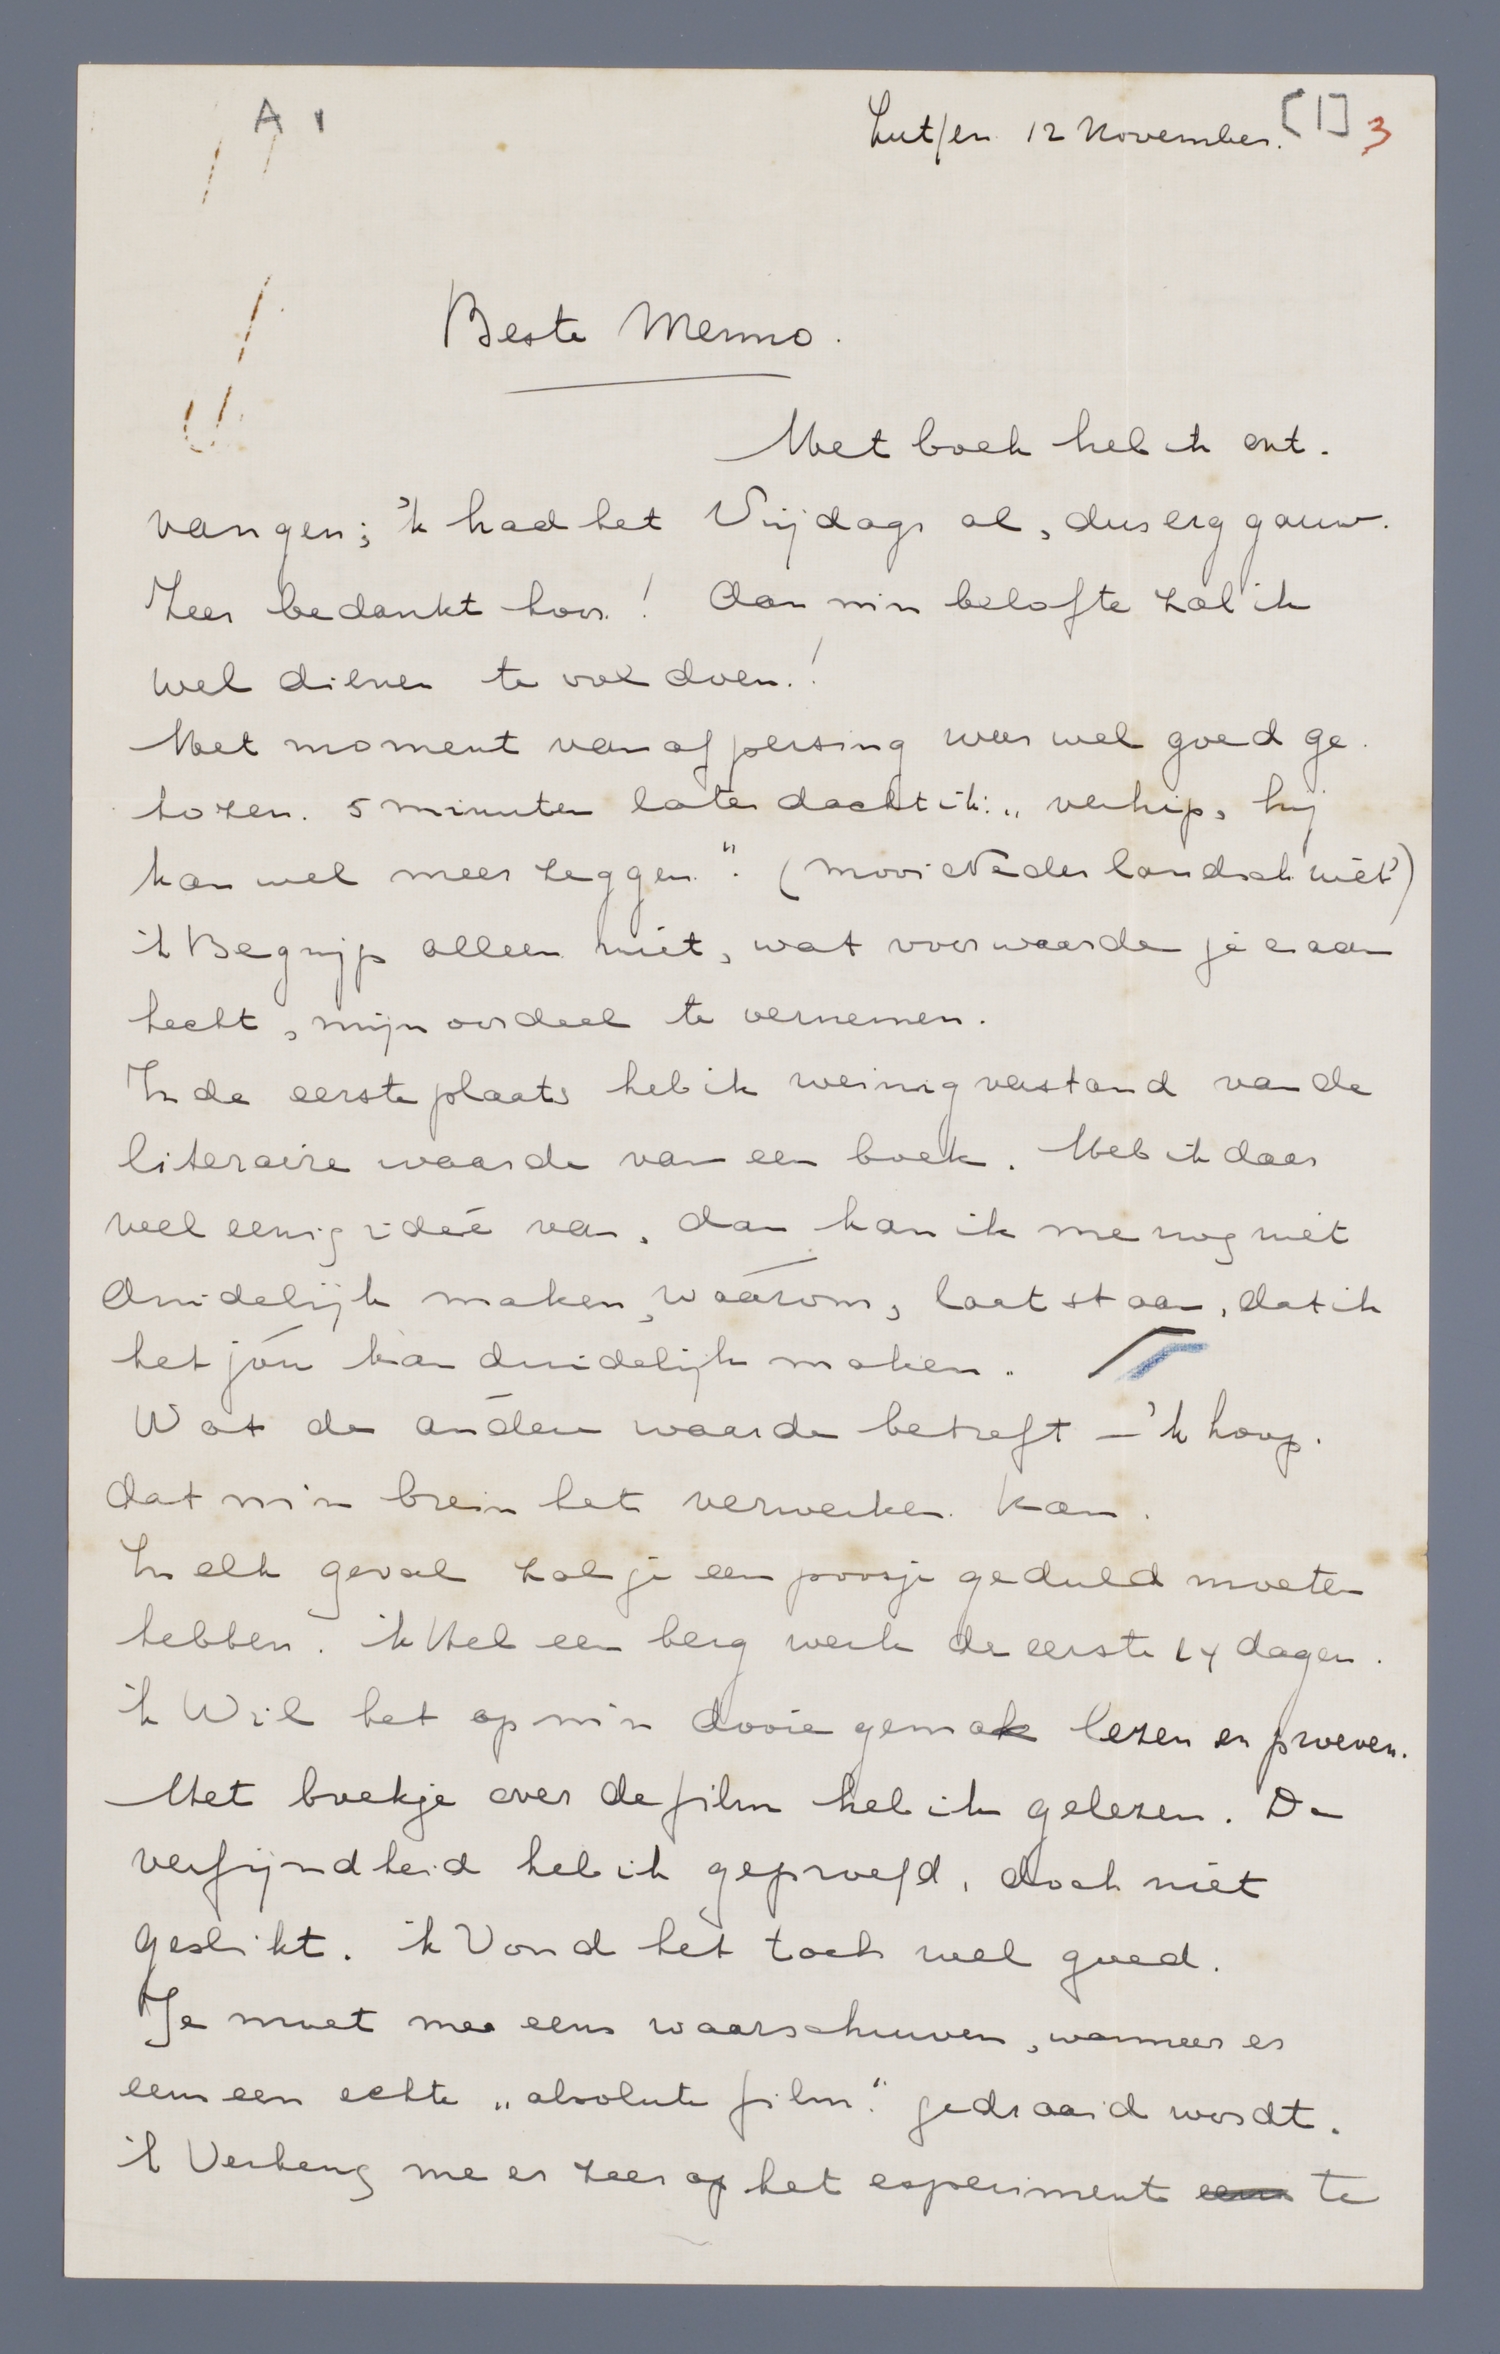 A 1
Zutfen 12 November. [1] 3
Beste Menno.
Het boek heb ik ont-
vangen; 'k had het Vrijdags al, dus erg gauw.
Zeer bedankt hoor! Aan m'n belofte zal ik
wel dienen te voldoen!
Het moment van afpersing was wel goed ge-
kozen. 5 minuten later dacht ik: „verhip, hij
kan wel meer zeggen". (mooi Nederlandsch niet?)
ik Begrijp alleen niet, wat voor waarde je eraan
hecht, mijn oordeel te vernemen.
In de eerste plaats heb ik weinig verstand van de
literaire waarde van een boek. Heb ik daar
wel eenig ideé van, dan kan ik me nog niet
duidelijk maken, wáárom, laat staan, dat ik
het jóu kan duidelijk maken.
Wat de andere waarde betreft – 'k hoop.
dat m'n brein het verwerken kan.
In elk geval zal je een poosje geduld moeten
hebben. ik Heb een berg werk de eerste 14 dagen.
ik Wil het op m'n dooie gemak lezen en proeven.
Het boekje over de film heb ik gelezen. De
verfijndheid heb ik geproefd, doch niet
geslikt. ik Vond het toch wel goed.
Je moet me eens waarschuwen, wanneer er
eens een echte „absolute film" gedraaid wordt.
ik Verheug me er zeer op het experiment eens te